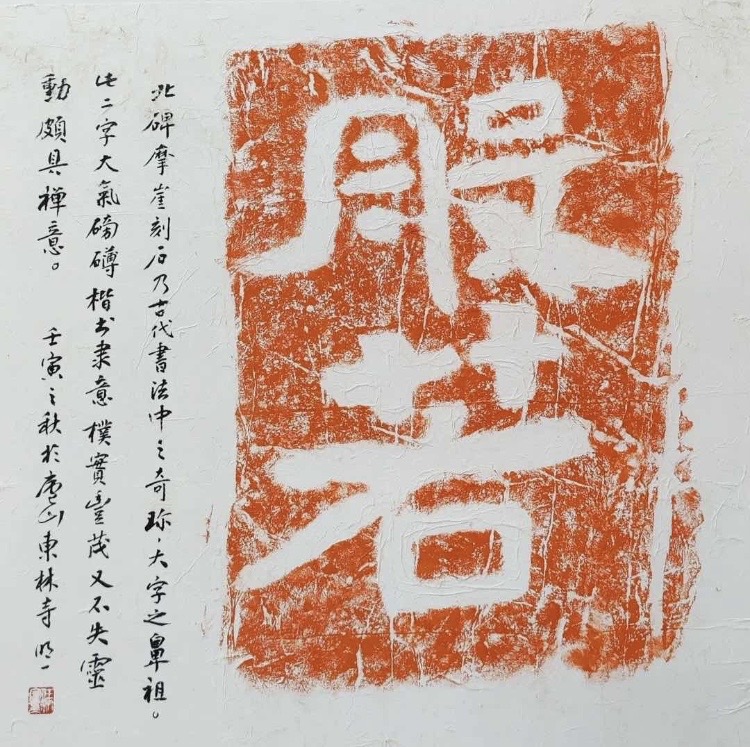 般若
此碑摩崖刻石乃古代書法中之奇珍，大字之鼻祖。
此二字大氣磅礡楷书隶意樸實豊茂又不失靈
動頗具禅意。 壬寅之秋於庐山東林寺 明一